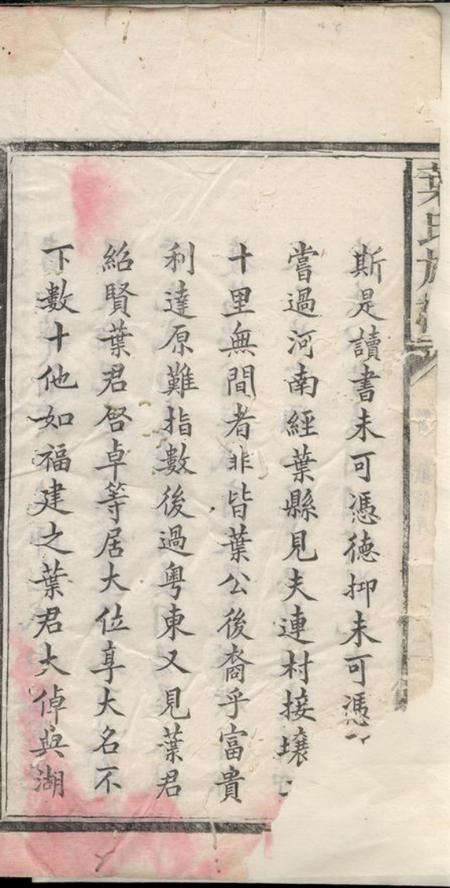 葉氏族
斯是讀書未可憑德抑未可憑
嘗過河南經葉縣見夫連村接壤
十里無間者非皆葉公後裔乎富貴
利達原難指數後過粵東又見葉君
紹賢葉君啓卓等居大位享大名不
下數十他如福建之葉君大倬與湖